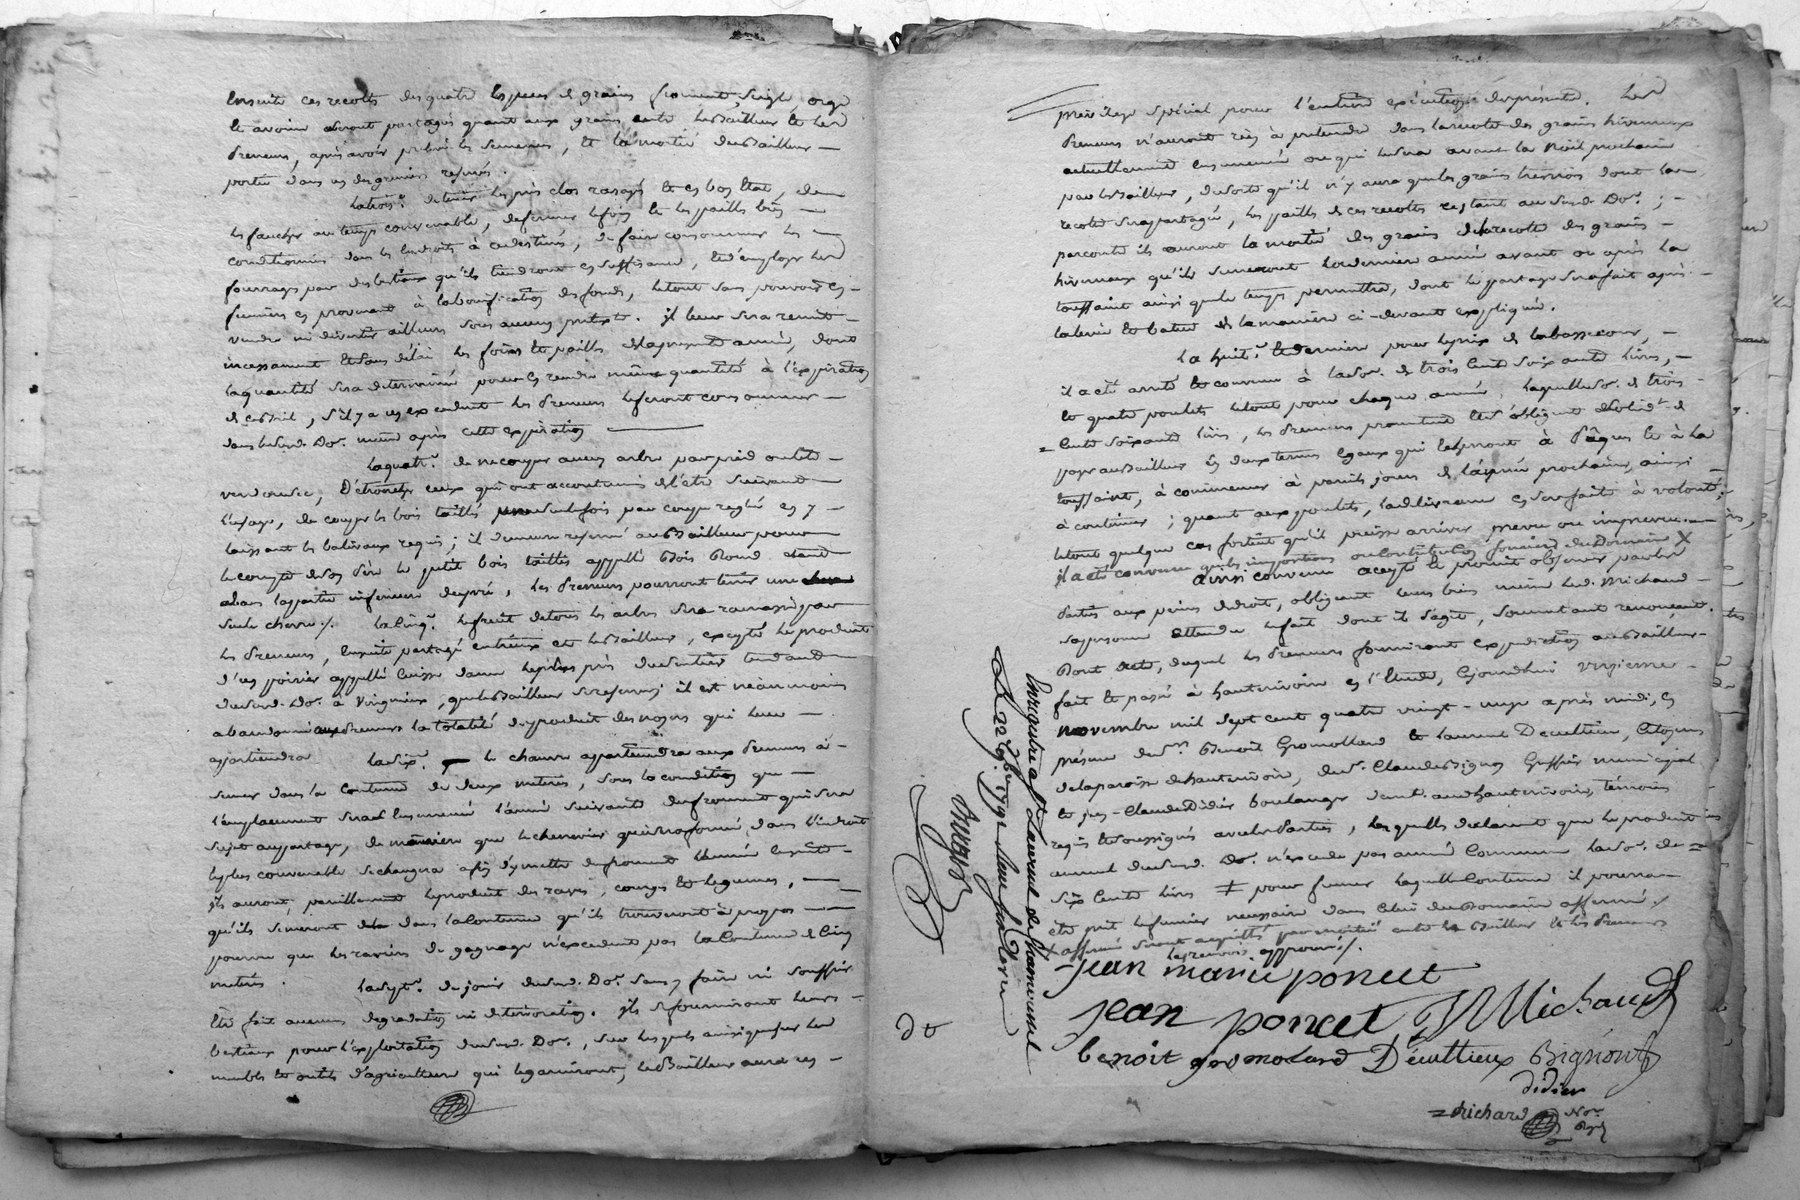 Ensuite ces recoltes des quatre especes de grains froment, seigle orge
et avoine seront partagés quant aux grains entre le Bailleur et les
Preneurs, après avoir prelevé les semences, et la moitié du Bailleur
portée dans ses greniers
La trois.e de tenir les près clos rasagés et en bon état, de
les faucher au temps convenable, de fermer les foins et les pailles bien
conditionnés dans les endroits à ce destinés, de faire consommer les
fourrages par des bestiaux qu'ils tiendront en suffisance, et d'employer les
fumiers en provenant à la bonification des fonds, le tout sans pouvoir en
vendre ni divertir ailleurs sous aucun pretexte. il leur sera remit
incessament et sans délai les foins et pailles de la presente année, dont
la quantité sera determinée pour en rendre même quantité à l'expiration
de ce bail, s'il y a un excedent les Preneurs le feront consommer
dans led. Do.e même après cette expiration
La quatr.e de ne couper aucun arbre par pied ou tête
verd ou sec, d'étroncher ceux qui ont accoutumé de l'être suivant
l'usage, de couper les bois taillis une seule fois par coupe reglée en y
laissant les baliveaux requis; il demeure reservé au Bailleur pour
le compte de son Père le petit bois taillis appellé Bois Rond étant
dans la partie inferieure du pré, les Preneurs pourront tenir une
seule chevre. La cinq.e le fruit de tous les arbres sera ramassé par
les Preneurs, ensuite partagé entr'eux et le Bailleur, excepté le produit
d'un poirier appellé Cuisse dame le plus près du sentier tendant
dud. Do.e à Virigneux, que le Bailleur se reserve; il est néanmoins
abandonné aux Preneurs la totalité du produit des noyers qui leur
appartiendra La six.e le chanvre appartiendra aux Preneurs à
semer dans la contenue de deux metéres, sous la condition que
l'emplacement sera ensemencé l'année suivante du froment qui sera
sujet au partage, de manière que la cheneviere qui sera formée dans l'endroit
le plus convenable se changera afin d'y mettre du froment l'année ensuite
ils auront, pareillement le produit des raves, courges et legumes,
qu'ils semeront dans la contenue qu'ils trouveront à propos
pourvu que les ravières de gagnage n'excedent pas la contenue de cinq
metéres. La sept.e de jouir dud. Do.e sans y faire ni souffrir
être fait aucunes degradations ni deteriorations. ils se fourniront leurs
bestiaux pour l'exploitation dud. Do.e, sur lesquels ainsi que sur les
meubles et outils d'agriculture qui le garniront, le Bailleur aura un
privilege spécial pour l'entiere execution des présentes. Les
Preneurs n'auront rien à pretendre dans la recolte des grains hivernaux
actuellement ensemencés ou qui le sera avant la Noël prochaine
par le Bailleur, de sorte qu'il n'y aura que les grains tremois dont la
recolte sera partagée, les pailles de ces recoltes restant aud. Do.e;
par contre ils auront la moitié des grains de la recolte des grains
hivernaux qu'ils semeront leur derniere année avant ou après la
toussaint ainsi que le temps permettra, dont le partage sera fait après
la levée et batue de la manière ci-devant expliquée.
La huit.e et derniere pour le prix de la bassecour,
il a été arreté et convenu à la so.e de trois cent soixante livres,
et quatre poulets le tout pour chaque année, laquelle so.e de trois
cents soixante livres, les Preneurs promettent et s'obligent solid.t de
payer au Bailleur en deux termes egaux qui echeront à Pâques et à la
toussaint, à commencer à pareils jours de l'année prochaine, ainsi
à continuer; quant aux poulets, la delivrance en sera faite à volonté;
le tout quelque cas fortuit qu'il puisse arriver prevu ou imprevu.
il a été convenu que les impositions ou Contribution fonciere du Domaine X
ainsi convenu accepté et promit observer par les
Parties aux peines de droit, obligeant leurs biens même led. Michaud
sa personne attendu le fait dont il s'agit, soumettant renonçant.
Dont acte, duquel les Preneurs fourniront expedition au Bailleur
fait et passé à hauterivoire en l'Etude, Cejourdhui onzieme
novembre mil sept cent quatre vingt-onze après midi, en
présence de s.rs Benoit Gromolard et Laurent Décultieux, Citoyens
de la paroisse de hauterivoire, de s.r Claude Bignon Greffier municipal
et Jos-Claude Didier boulanger dem.t aud. hauterivoire, témoins
requis et soussignés avec les Parties, lesquelles declarent que le produit
annuel dud. Do.e n'excede pas année Commune la so.e de
six cents livres ≠ pour fumer laquelle contenue il pourra
être prit le fumier necessaire dans celui du Domaine affermé.
X affermé seront acquittés par moitié entre le Bailleur et les Preneurs
les renvois approuvés.
jean marie poncet
jean poncet JM Michaud
benoit gromolard Décultieux Bignon
didier
Richard No.re
Enregistré à St Laurent de Chamousset
Le 22 9bre 1791